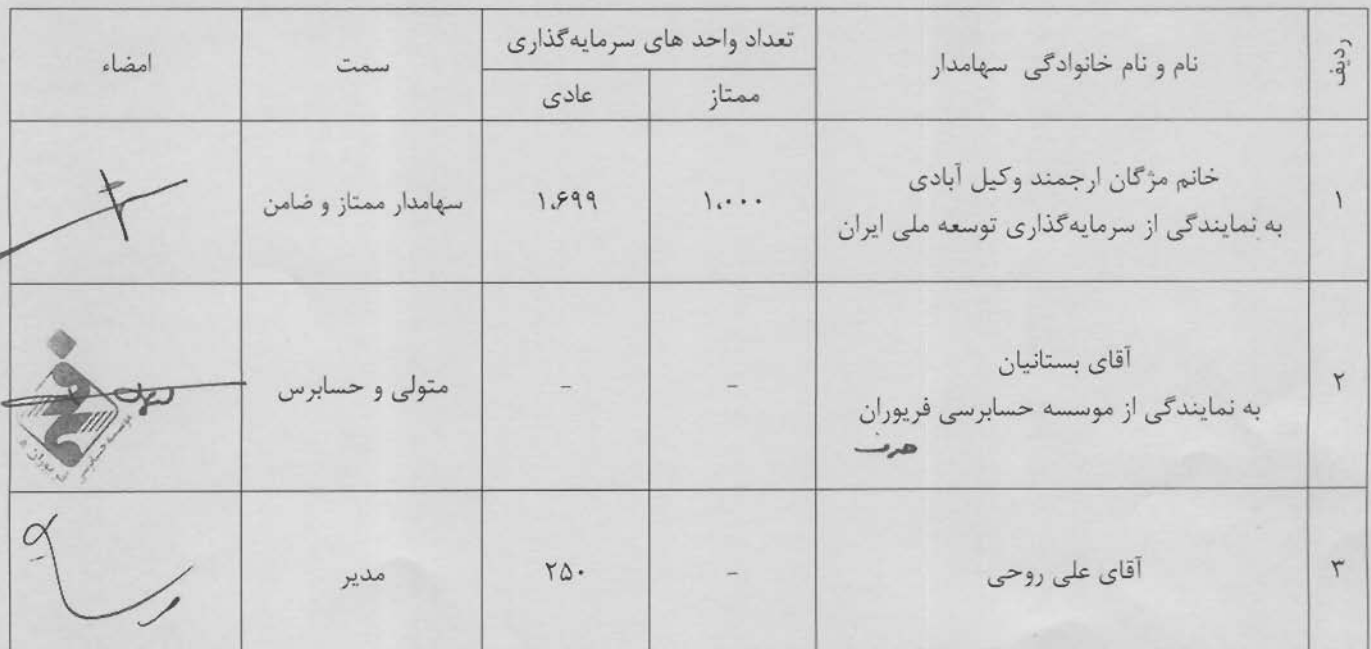 ردیف
نام و نام خانوادگی سهامدار
تعداد واحد های سرمایه‌گذاری
ممتاز
عادی
سمت
امضاء
۱
خانم مژگان ارجمند وکیل آبادی
به نمایندگی از سرمایه‌گذاری توسعه ملی ایران
۱,۰۰۰
۱,۶۹۹
سهامدار ممتاز و ضامن
۲
آقای بستانیان
به نمایندگی از موسسه حسابرسی فریوران
-
-
متولی و حسابرس
موسسه حسابرسی
۳
آقای علی روحی
-
۲۵۰
مدیر